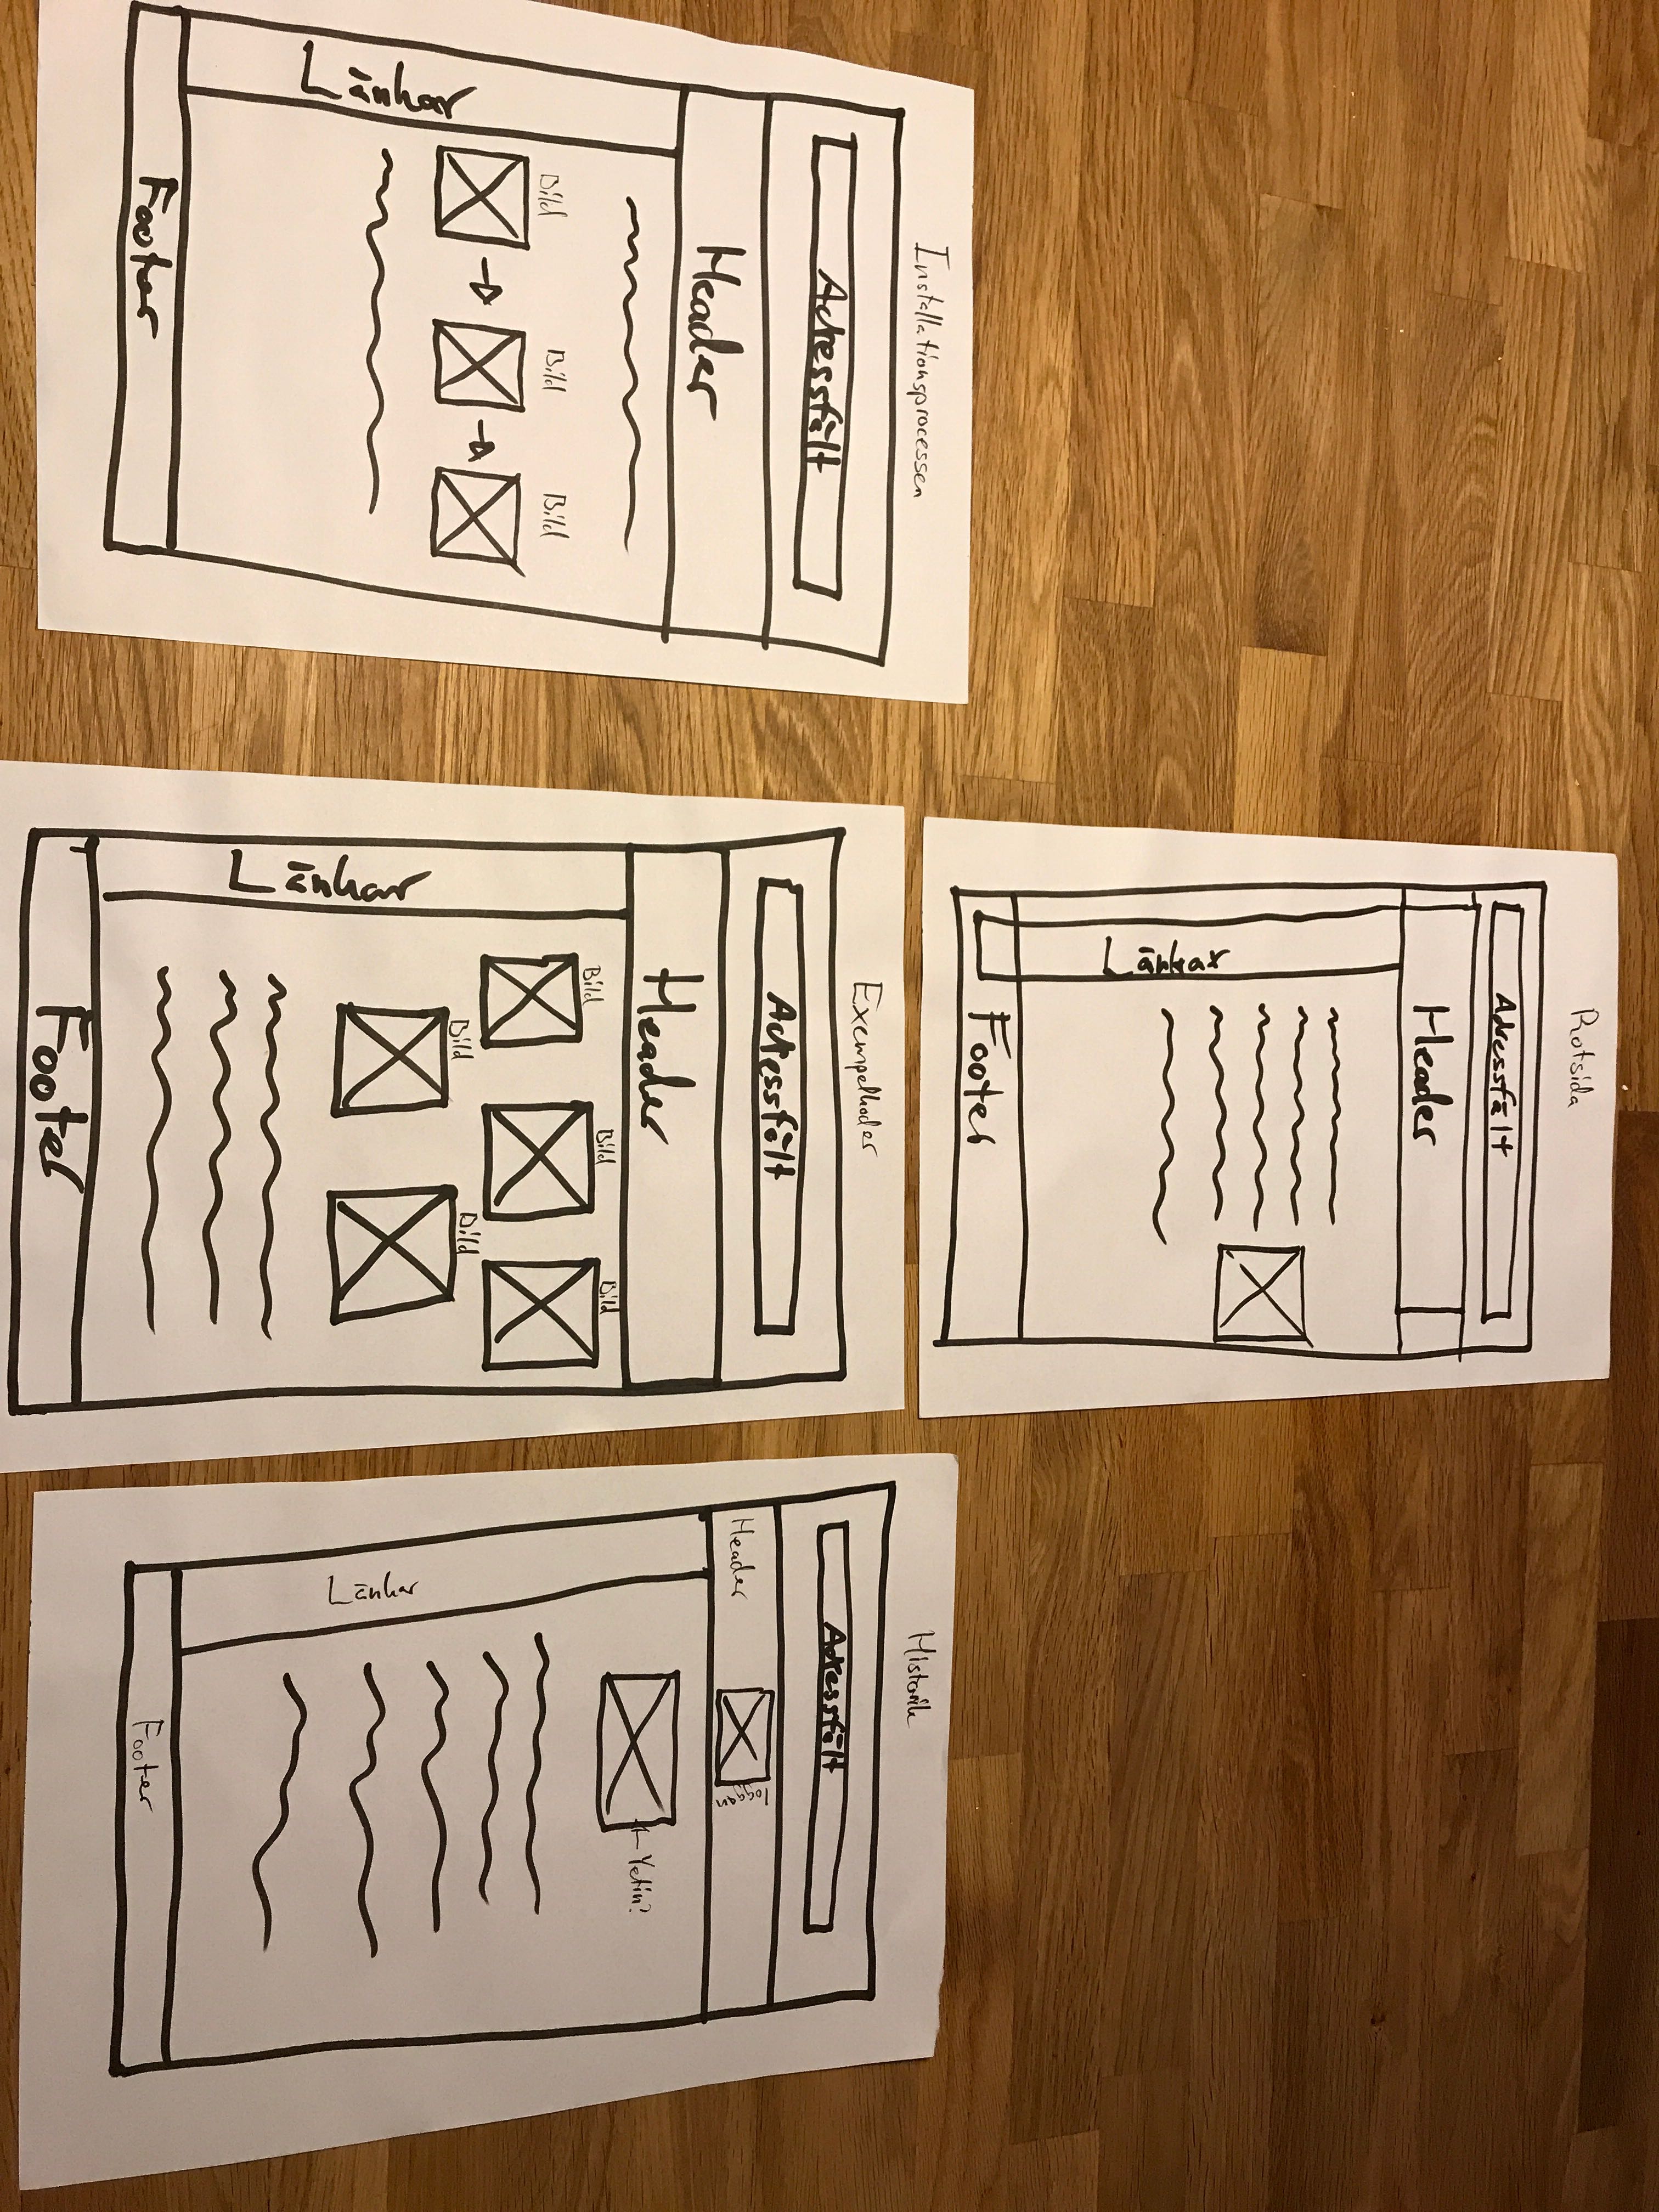 Rotsida
Adressfält
Header
Länkar
Footer
Installationsprocessen
Adressfält
Header
Bild
Bild
Bild
Länkar
Footer
Exempelkoder
Adressfält
Header
Bild
Bild
Bild
Bild
Bild
Länkar
Footer
Historik
Adressfält
Header
loggan
Yetin?
Länkar
Footer